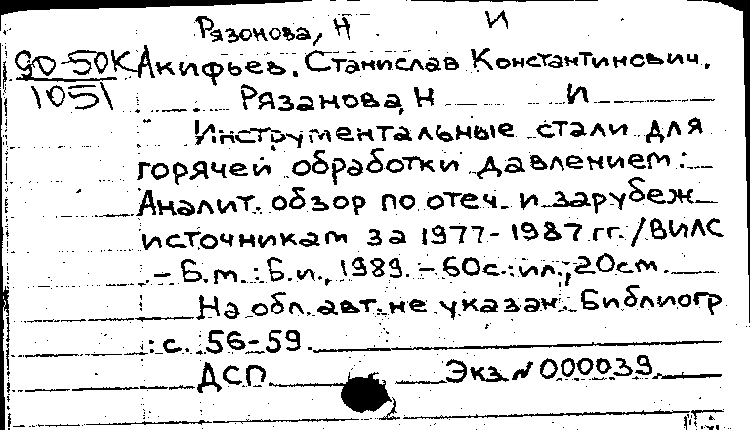 Рязонова, Н И
9D-50К Акифьев. Станислав Константинович.
1051 Рязанова, Н И
Инструментальные стали для
горячей обработки давлением:
Аналит. обзор по отеч. и зарубеж
источникам за 1977-1987 гг. / ВИЛС
- Б.м.: Б.и., 1989. - 60с.: ил.; 20см.
На обл. авт. не указан. Библиогр
: с. 56-59.
ДСП Экз № 000039